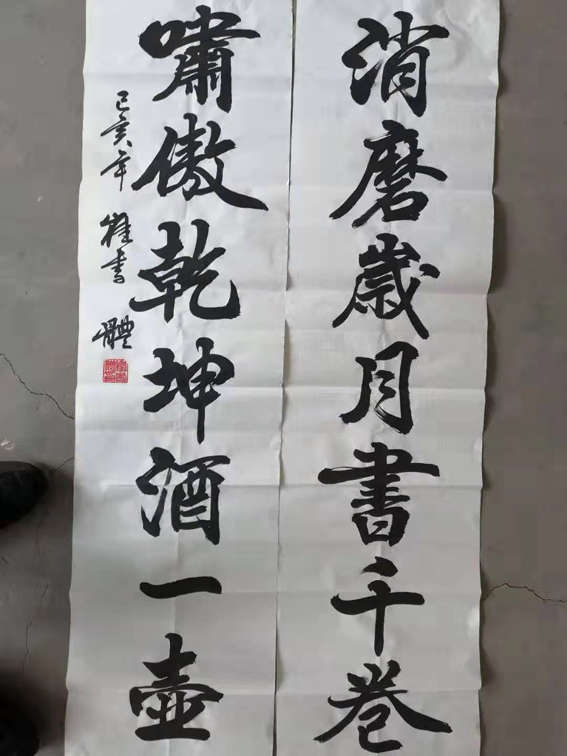 消磨歲月書千卷
嘯傲乾坤酒一壺
己亥年